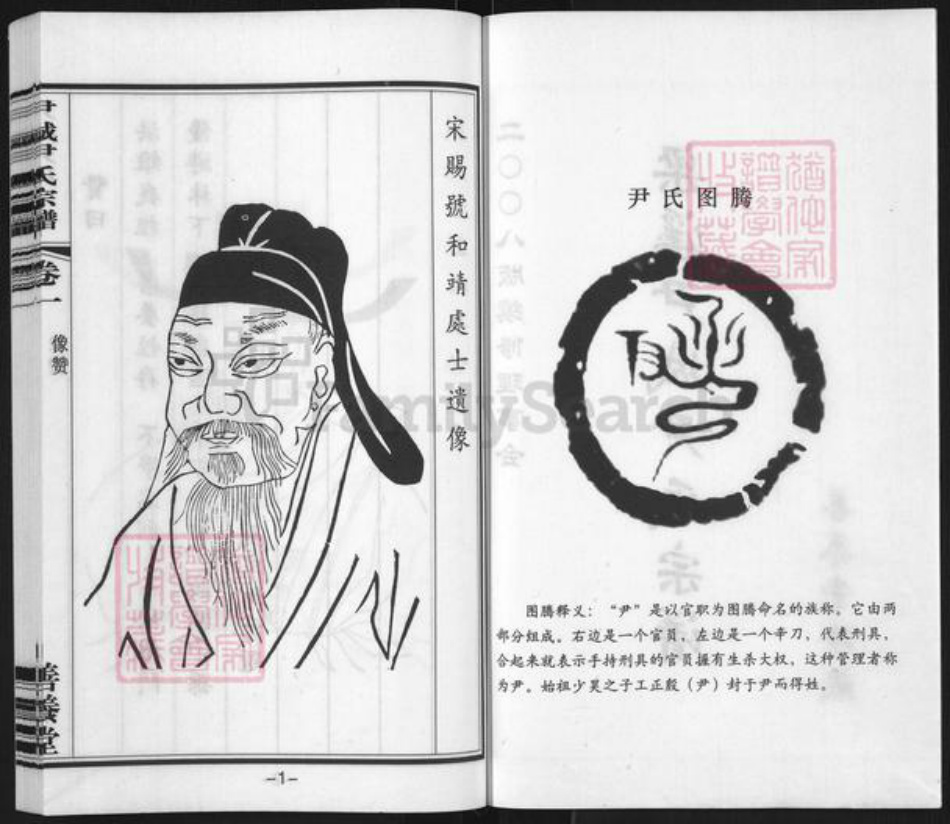 尹氏图腾
图腾释义：“尹”是以官职为图腾命名的族称。它由两
部分组成。右边是一个官员，左边是一个辛刀，代表刑具，
合起来就表示手持刑具的官员握有生杀大权，这种管理者称
为尹。始祖少昊之子工正殷（尹）封于尹而得姓。
宋賜號和靖處士遺像
尹氏宗谱
卷一
像赞
善養堂
-1-
FamilySearch